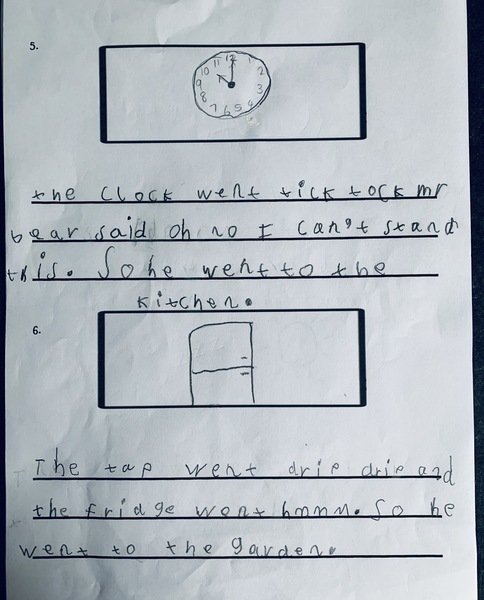 5.
12
11 1
10 2
9 3
8 4
7 6 5
the clock went tick tock mr
bear said oh no I can't stand
this. So he went to the
kitchen.
6.
The tap went drip drip and
the fridge went hmmm. So he
went to the garden.